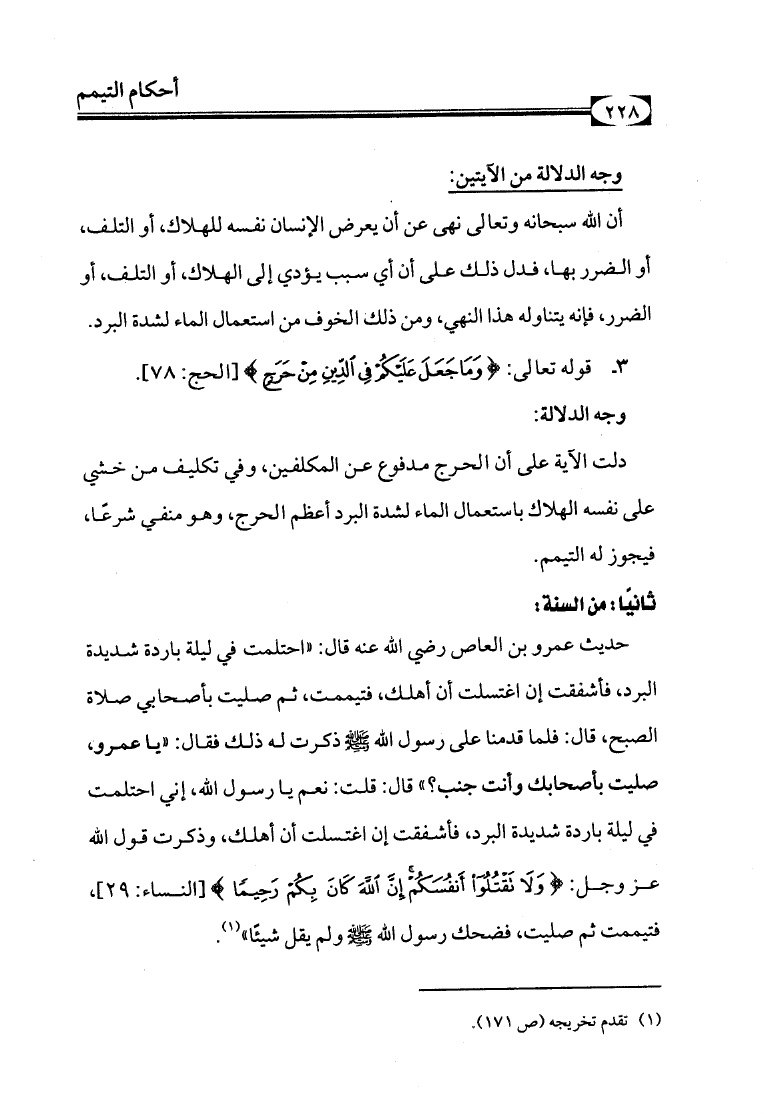 أحكام التيمم
٢٢٨
وجه الدلالة من الآيتين:
أن الله سبحانه وتعالى نهى عن أن يعرض الإنسان نفسه للهلاك، أو التلف،
أو الضرر بها، فدل ذلك على أن أي سبب يؤدي إلى الهلاك، أو التلف، أو
الضرر، فإنه يتناوله هذا النهي، ومن ذلك الخوف من استعمال الماء لشدة البرد.
٣ـ قوله تعالى: ﴿ وَمَا جَعَلَ عَلَيْكُمْ فِي ٱلدِّينِ مِنْ حَرَجٍ ﴾ [الحج: ٧٨].
وجه الدلالة:
دلت الآية على أن الحرج مدفوع عن المكلفين، وفي تكليف من خشي
على نفسه الهلاك باستعمال الماء لشدة البرد أعظم الحرج، وهو منفي شرعًا،
فيجوز له التيمم.
ثانيًا: من السنة:
حديث عمرو بن العاص رضي الله عنه قال: «احتلمت في ليلة باردة شديدة
البرد، فأشفقت إن اغتسلت أن أهلك، فتيممت، ثم صليت بأصحابي صلاة
الصبح، قال: فلما قدمنا على رسول الله ﷺ ذكرت له ذلك فقال: «يا عمرو،
صليت بأصحابك وأنت جنب؟» قال: قلت: نعم يا رسول الله، إني احتلمت
في ليلة باردة شديدة البرد، فأشفقت إن اغتسلت أن أهلك، وذكرت قول الله
عز وجل: ﴿ وَلَا نَقْتُلُوٓا۟ أَنفُسَكُمْ ۚ إِنَّ ٱللَّهَ كَانَ بِكُمْ رَحِيمًا ﴾ [النساء: ٢٩]،
فتيممت ثم صليت، فضحك رسول الله ﷺ ولم يقل شيئًا»(١).
(١) تقدم تخريجه (ص ١٧١).